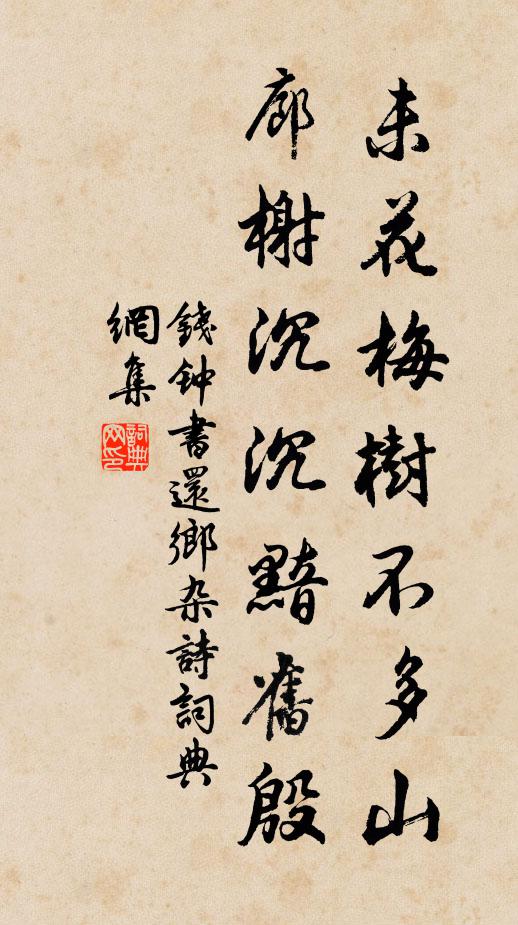 未花梅樹不多山
廊榭沉沉黯舊殷
錢钟書還鄉杂詩詞典
網集
詞典網印